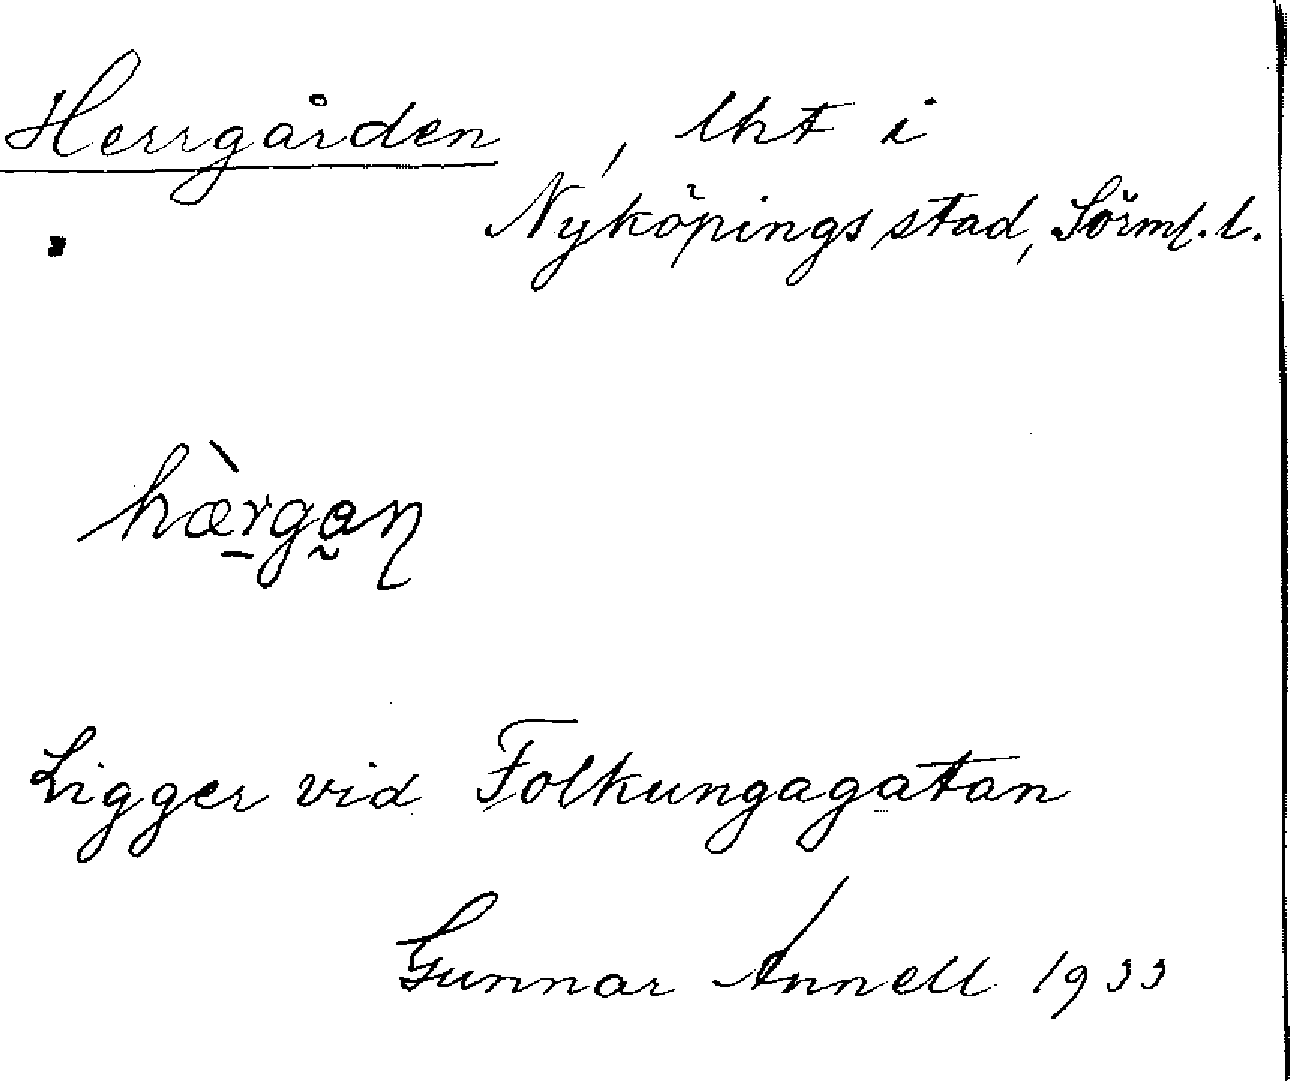 Herrgården, lht i
Nyköpings stad, Sörml. l.
hæ̀rgan
Ligger vid Folkungagatan
Gunnar Annell 1933